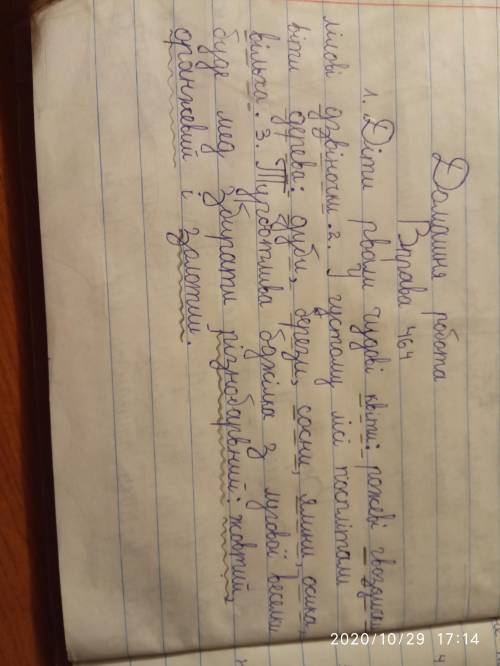 Домашня робота
Вправа 464
1. Діти рвали чудові квіти: рожеві гвоздики,
лілові дзвіночки. 2. У густому лісі посплітали
віти дерева: дуби, берези, сосни, ялини, осика,
вільха. 3. Турботлива бджілка з лугової веселки
буде мед збирати різнобарвний: жовтий,
оранжевий і золотий.
2020/10/29 17:14